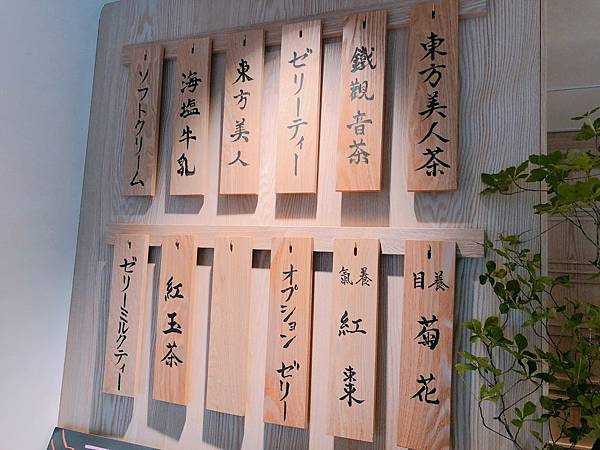 東方美人茶
鐵觀音茶
ゼリーティー
東方美人
海塩牛乳
ソフトクリーム
養目
菊花
養氣
紅棗
オプション ゼリー
紅玉茶
ゼリーミルクティー